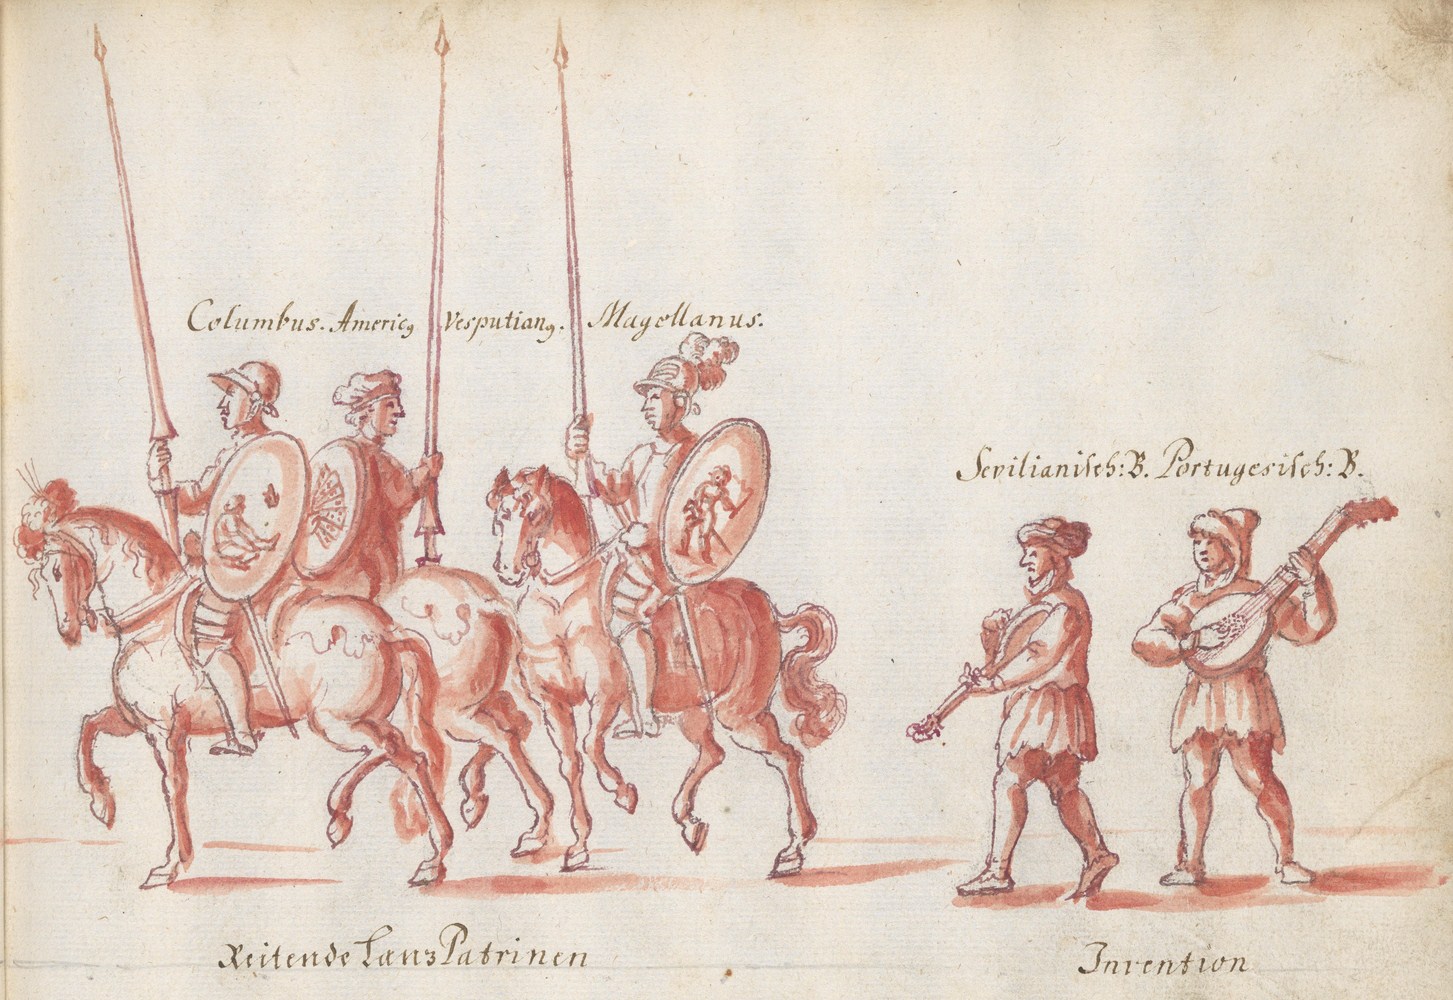 Columbus. Americꝰ Vesputianꝰ. Magellanus.
Sevilianisch: B. Portugesisch: B.
Reitende Lanz Patrinen
Invention